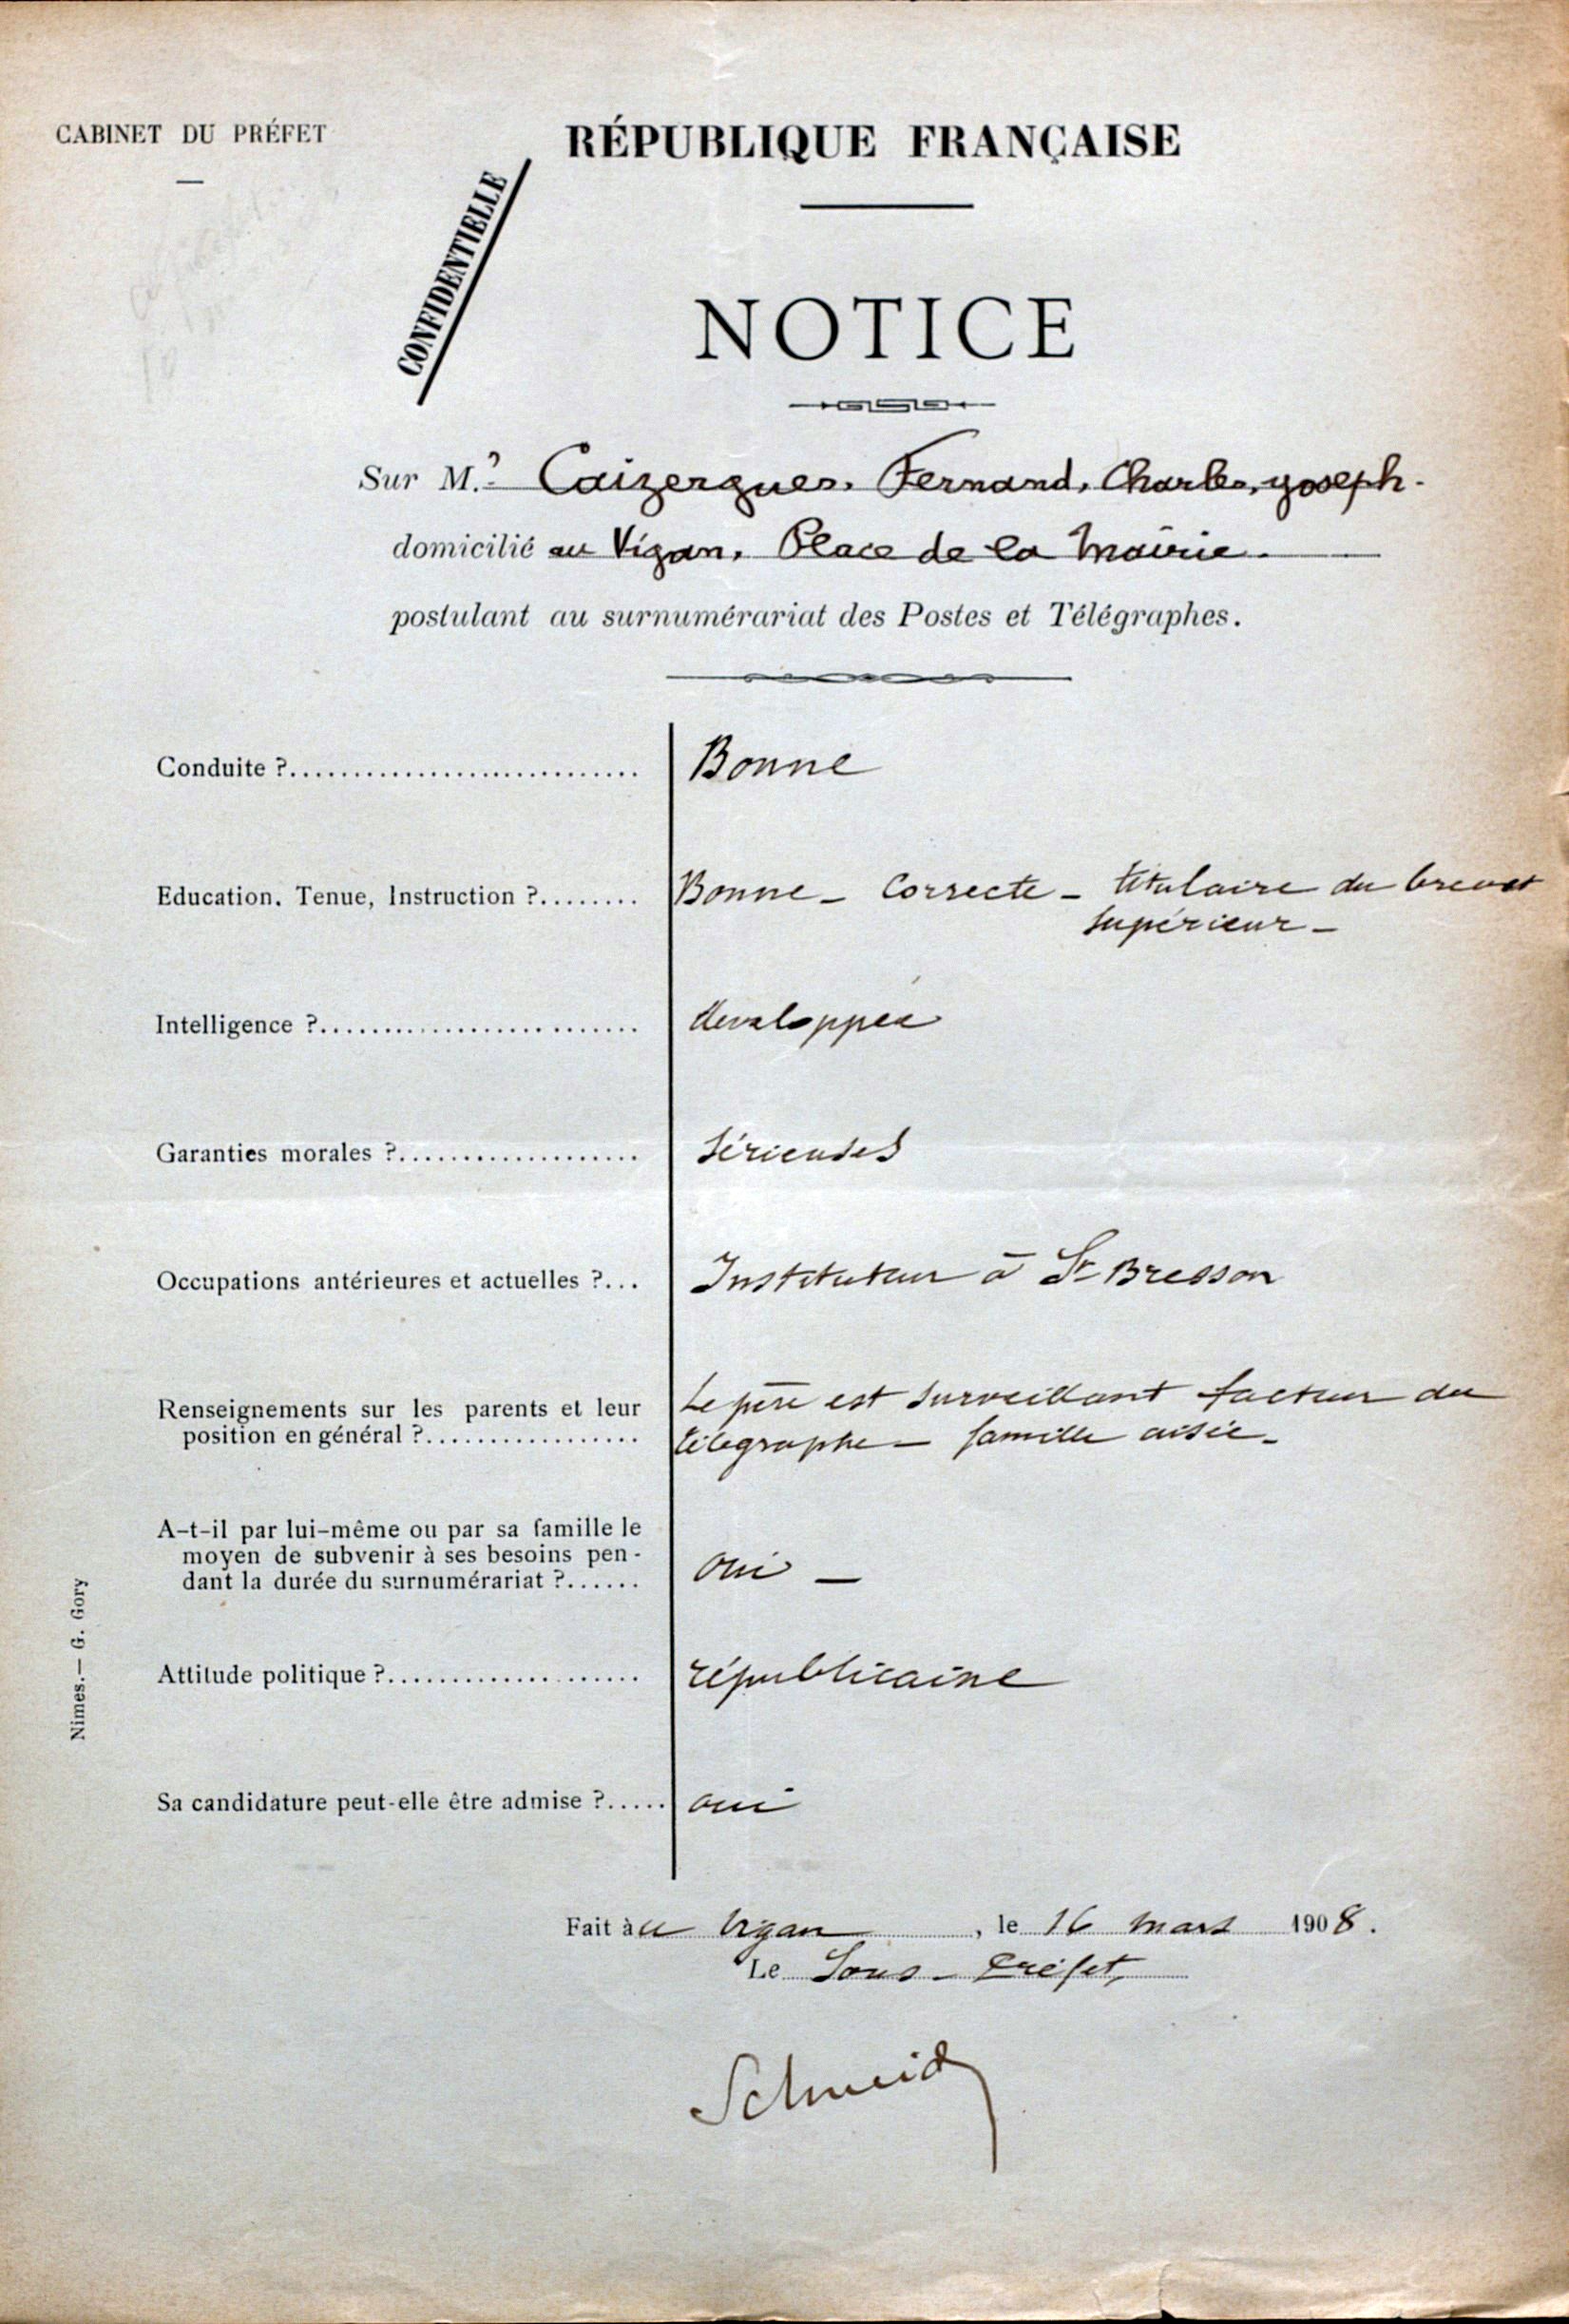 CABINET DU PRÉFET
RÉPUBLIQUE FRANÇAISE
CONFIDENTIELLE
NOTICE
Sur M.r Caizergues, Fernand, Charles, Joseph.
domicilié au Vigan, Place de la Mairie.
postulant au surnumérariat des Postes et Télégraphes.
Conduite ?............................ Bonne
Education. Tenue, Instruction ?........ Bonne - Correcte - titulaire du brevet
supérieur -
Intelligence ?......................... développée
Garanties morales ?................... Sérieuses
Occupations antérieures et actuelles ?... Instituteur à St Bresson
Renseignements sur les parents et leur Le père est surveillant facteur du
position en général ?................. télégraphe - famille aisée -
A-t-il par lui-même ou par sa famille le
moyen de subvenir à ses besoins pen-
dant la durée du surnumérariat ?...... Oui -
Attitude politique ?.................... républicaine
Sa candidature peut-elle être admise ?..... oui
Nimes.— G. Gory
Fait àu Vigan, le 16 mars 1908.
Le Sous-Préfet,
Schmid